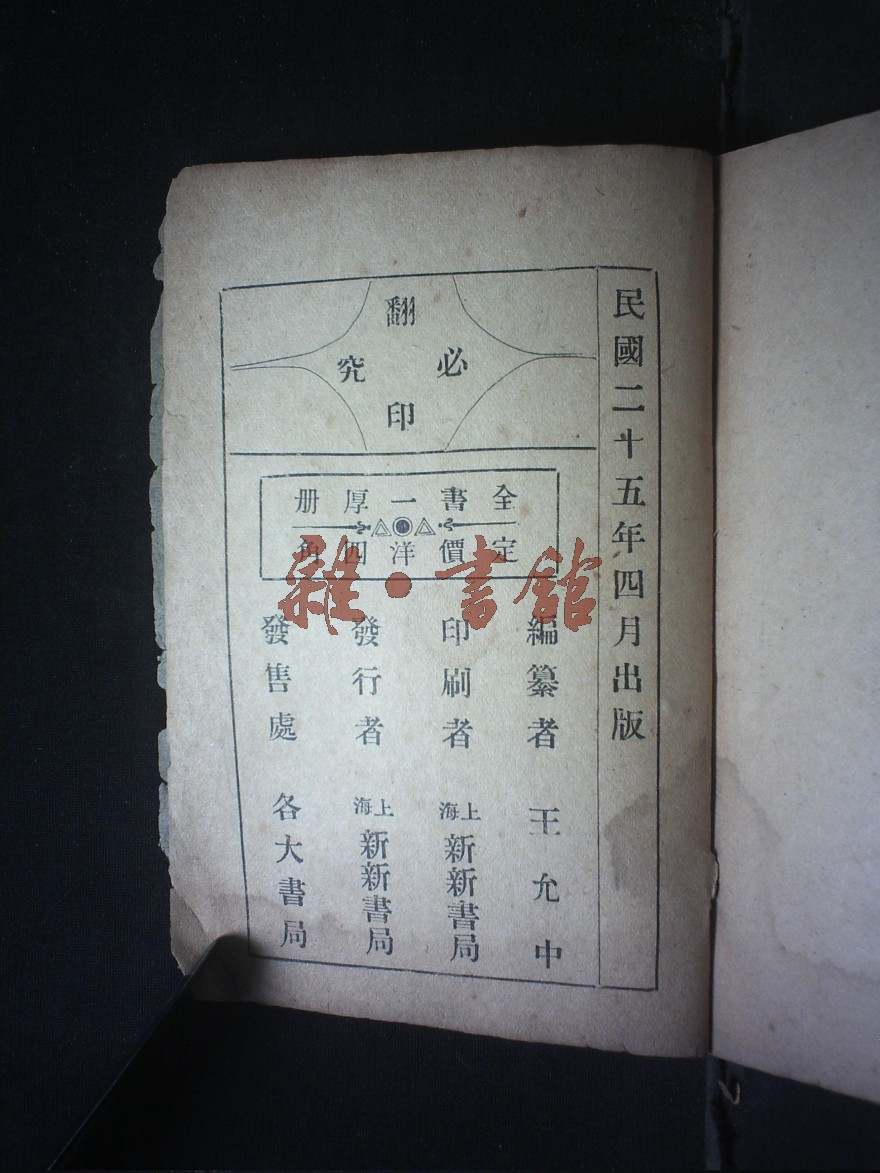 民國二十五年四月出版
翻印必究
全書一厚册
定價洋四角
編纂者 王允中
印刷者 上海新新書局
發行者 上海新新書局
發售處 各大書局
雜·書館